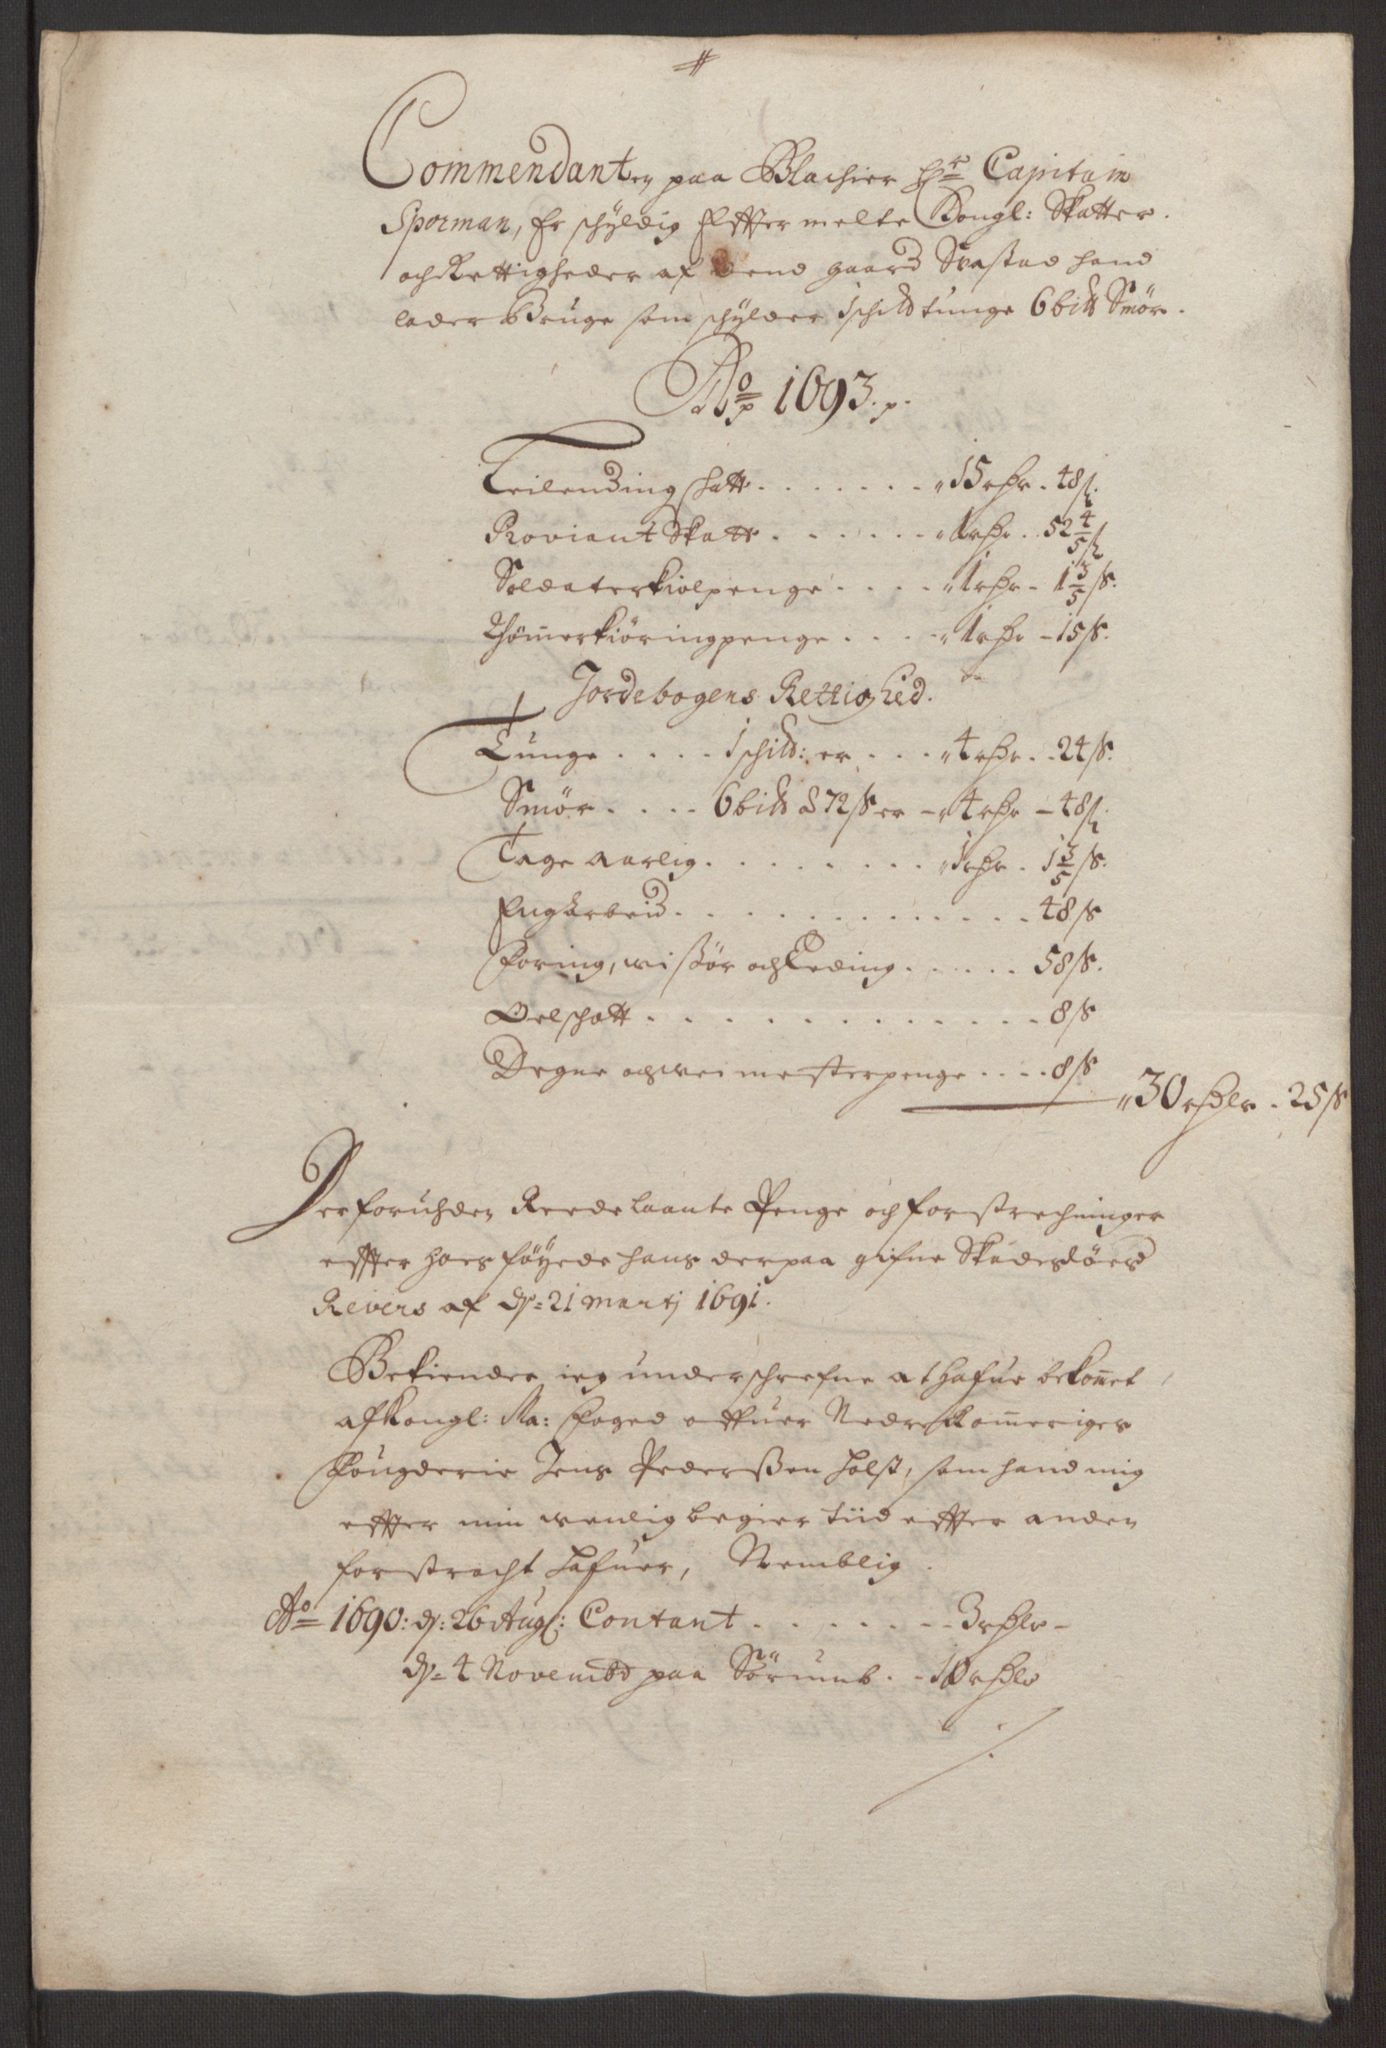 Commendanten paa Blachier Hr Capitain
Sporman, Er schyldig Effter melte Kongl: Skatter
och Rettigheder af dend gaard Svastad hand
lader Bruge som schylder 1 schild tunge 6 bidt Smör.
Ao 1693.
Leilending schatt . . . . . . . 15 rhr - 48 s.
Proviant Skatt . . . . . . 1 rhr . . 52 4/5 s
Soldaterkiolpenge . . . . 1 rhr - 1 3/5 s.
Thömerkiöringpenge . . . . 1 rhr - 15 s.
Jordebogens Rettighed.
Tunge . . . . 1 schild: er . . . 4 rhr . . 24 s.
Smör . . . . 6 bidt a 72 s er - 4 rhr - 48 s
Tage aarlig . . . . . . . . 1 rhr . 1 3/5 s.
Engarbeid . . . . . . . . . . . . . 48 s
Foring, wissör och Leding . . . . . 58 s.
Oelschatt . . . . . . . . . . . . . . 8 s
Degne och wei mesterpenge . . . . 8 s
30 rhdlr . 25 s
Der foruhden Reede laante Penge och forstrechninger
effter hoes föyede hans derpaa gifne Skadeslöes
Revers af d: 21 Martj 1691.
Bekiender ieg underschrefne at hafue bekomet
af Kongl: Ma: Foged offuer Nedre Romeriges
Fougderie Jens Pederssen Holst, som hand mig
effter min wenlig begier tiid effter anden
forstracht hafuer, Nemblig
Ao 1690: d: 26 Aug: Contant . . . . . . . 3 rhdlr -
d: 4 Novembr paa Sörumb . - 10 rhdlr